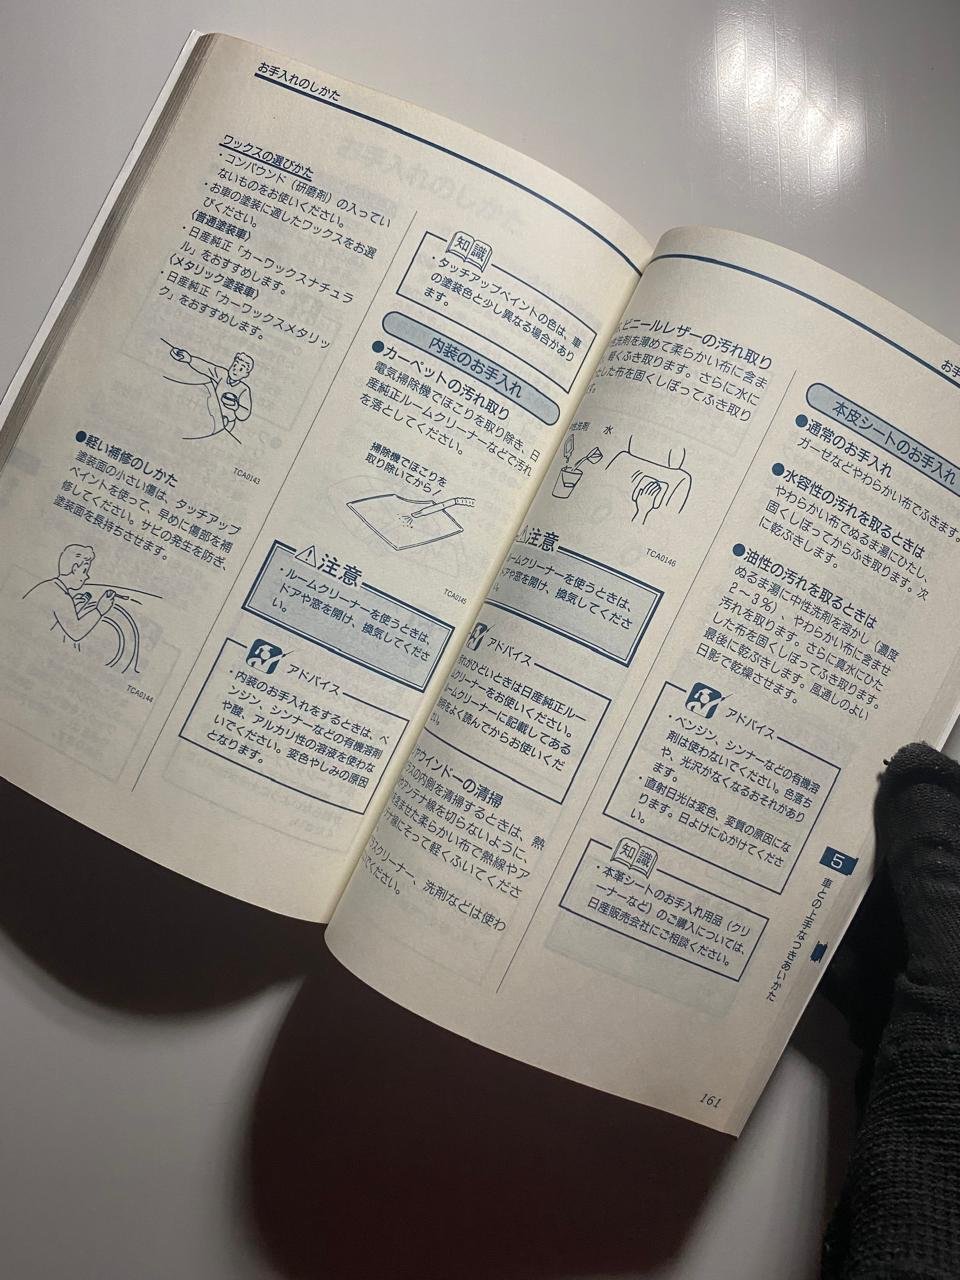 お手入れのしかた
ワックスの選びかた
・コンパウンド（研磨剤）の入ってい
ないものをお使いください。
・お車の塗装に適したワックスをお選
びください。
〈普通塗装車〉
・日産純正「カーワックスナチュラ
ル」をおすすめします。
〈メタリック塗装車〉
・日産純正「カーワックスメタリッ
ク」をおすすめします。
TCA0143
●軽い補修のしかた
塗装面の小さい傷は、タッチアップ
ペイントを使って、早めに傷部を補
修してください。サビの発生を防ぎ、
塗装面を長持ちさせます。
TCA0144
知識
・タッチアップペイントの色は、車
の塗装色と少し異なる場合があり
ます。
内装のお手入れ
●カーペットの汚れ取り
電気掃除機でほこりを取り除き、日
産純正ルームクリーナーなどで汚れ
を落としてください。
掃除機でほこりを
取り除いてから
TCA0145
注意
・ルームクリーナーを使うときは、
ドアや窓を開け、換気してくださ
い。
アドバイス
・内装のお手入れをするときは、ベ
ンジン、シンナーなどの有機溶剤
や酸、アルカリ性の溶液を使わな
いでください。変色やしみの原因
となります。
ビニールレザーの汚れ取り
洗剤を薄めて柔らかい布に含ま
軽くふき取ります。さらに水に
した布を固くしぼってふき取り
ます。
洗剤
水
TCA0146
注意
ームクリーナーを使うときは、
ドアや窓を開け、換気してくださ
い。
アドバイス
汚れがひどいときは日産純正ルー
ムクリーナーをお使いください。
ームクリーナーに記載してある
明をよく読んでからお使いくだ
さい。
ウインドーの清掃
ラスの内側を清掃するときは、熱
アンテナ線を切らないように、
含ませた柔らかい布で熱線やア
ナ線にそって軽くふいてくださ
スクリーナー、洗剤などは使わ
でください。
お手
本皮シートのお手入れ
●通常のお手入れ
ガーゼなどやわらかい布でふきます。
●水溶性の汚れを取るときは
やわらかい布でぬるま湯にひたし、
固くしぼってからふき取ります。次
に乾ぶきします。
●油性の汚れを取るときは
ぬるま湯に中性洗剤を溶かし（濃度
2～3%）、やわらかい布に含ませ
汚れを取ります。さらに真水にひた
した布を固くしぼってふき取ります。
最後に乾ぶきします。風通しのよい
日影で乾燥させます。
アドバイス
・ベンジン、シンナーなどの有機溶
剤は使わないでください。色落ち
や、光沢がなくなるおそれがあり
ます。
・直射日光は変色、変質の原因にな
ります。日よけに心がけてくださ
い。
知識
・本革シートのお手入れ用品（クリ
ーナーなど）のご購入については、
日産販売会社にご相談ください。
5
車との上手なつきあいかた
161